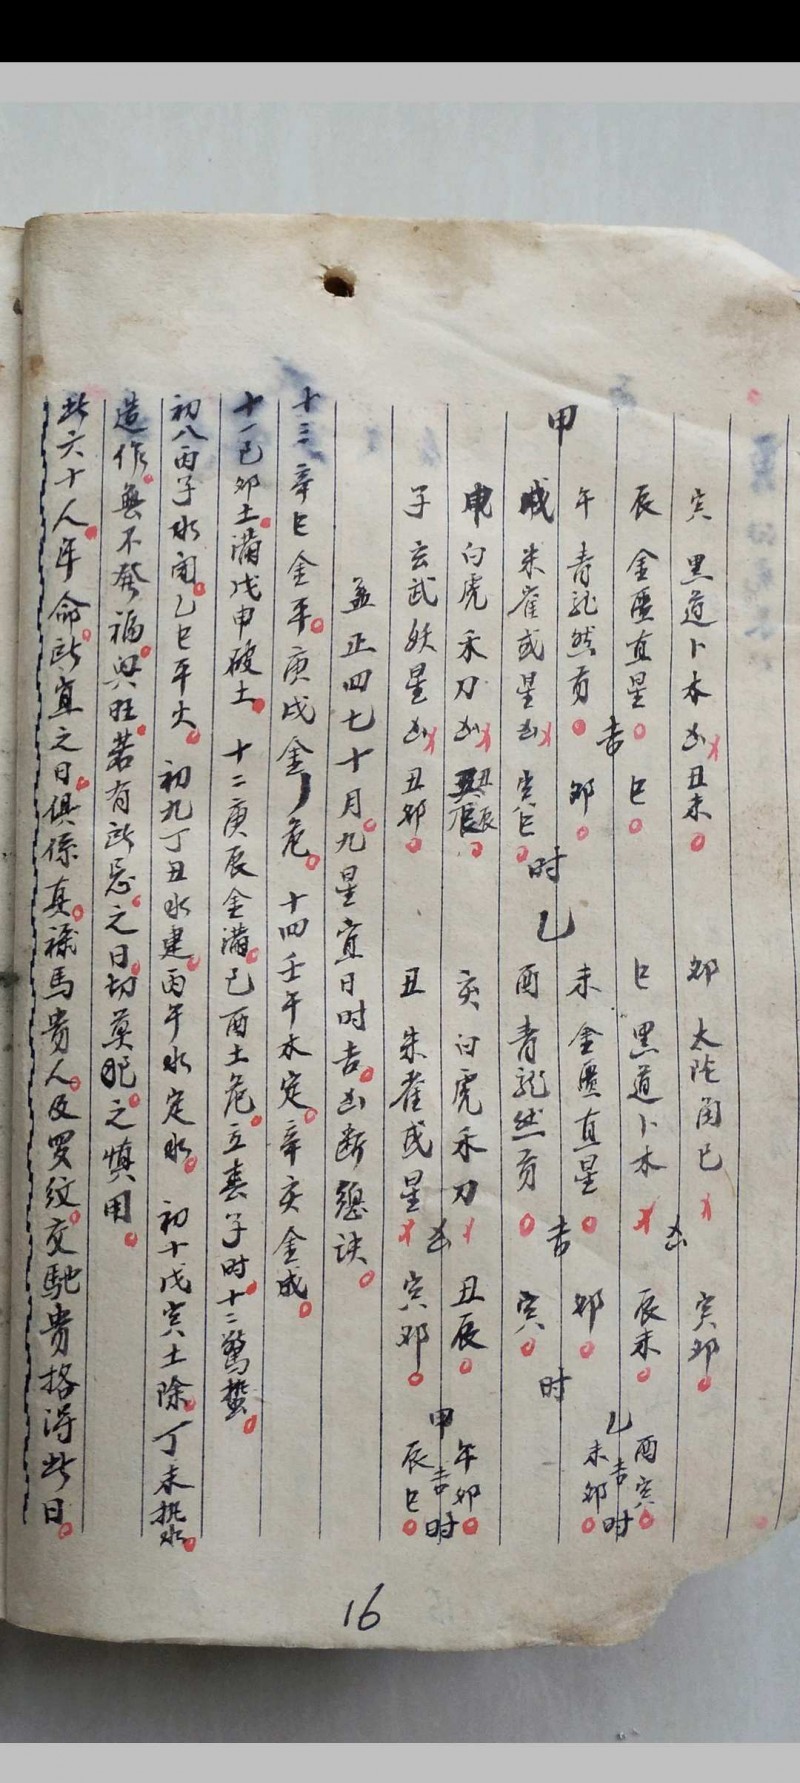 甲
寅 黑道卜木凶 丑未
辰 金匱直星 巳
吉
午 青龙然貢 卯
戌 朱雀或星凶 寅巳
时
申 白虎禾刀凶 丑辰
子 玄武妖星凶 丑卯
乙
卯 太陀角已 寅卯
凶
巳 黑道卜木 辰未
未 金匱直星 卯
吉
酉 青龙然貢 寅
时
亥 白虎禾刀 丑辰
凶
丑 朱雀或星 寅卯
乙 酉寅 未卯 吉时
甲 午卯 辰巳 吉时
孟正四七十月九星宜日时吉凶断總诀
十三辛巳金平庚戌金危 十四壬午木定辛亥金成
十一己卯土满戊申破土 十二庚辰金满己酉土危立春子时十二驚蟄
初八丙子水闭乙巳平火 初九丁丑水建丙午水定水 初十戊寅土除丁未执水
造作無不發福興旺若有所忌之日切莫犯之慎用
此六十人年命所宜之日俱係真禄馬贵人及罗紋交馳贵格得此日
16